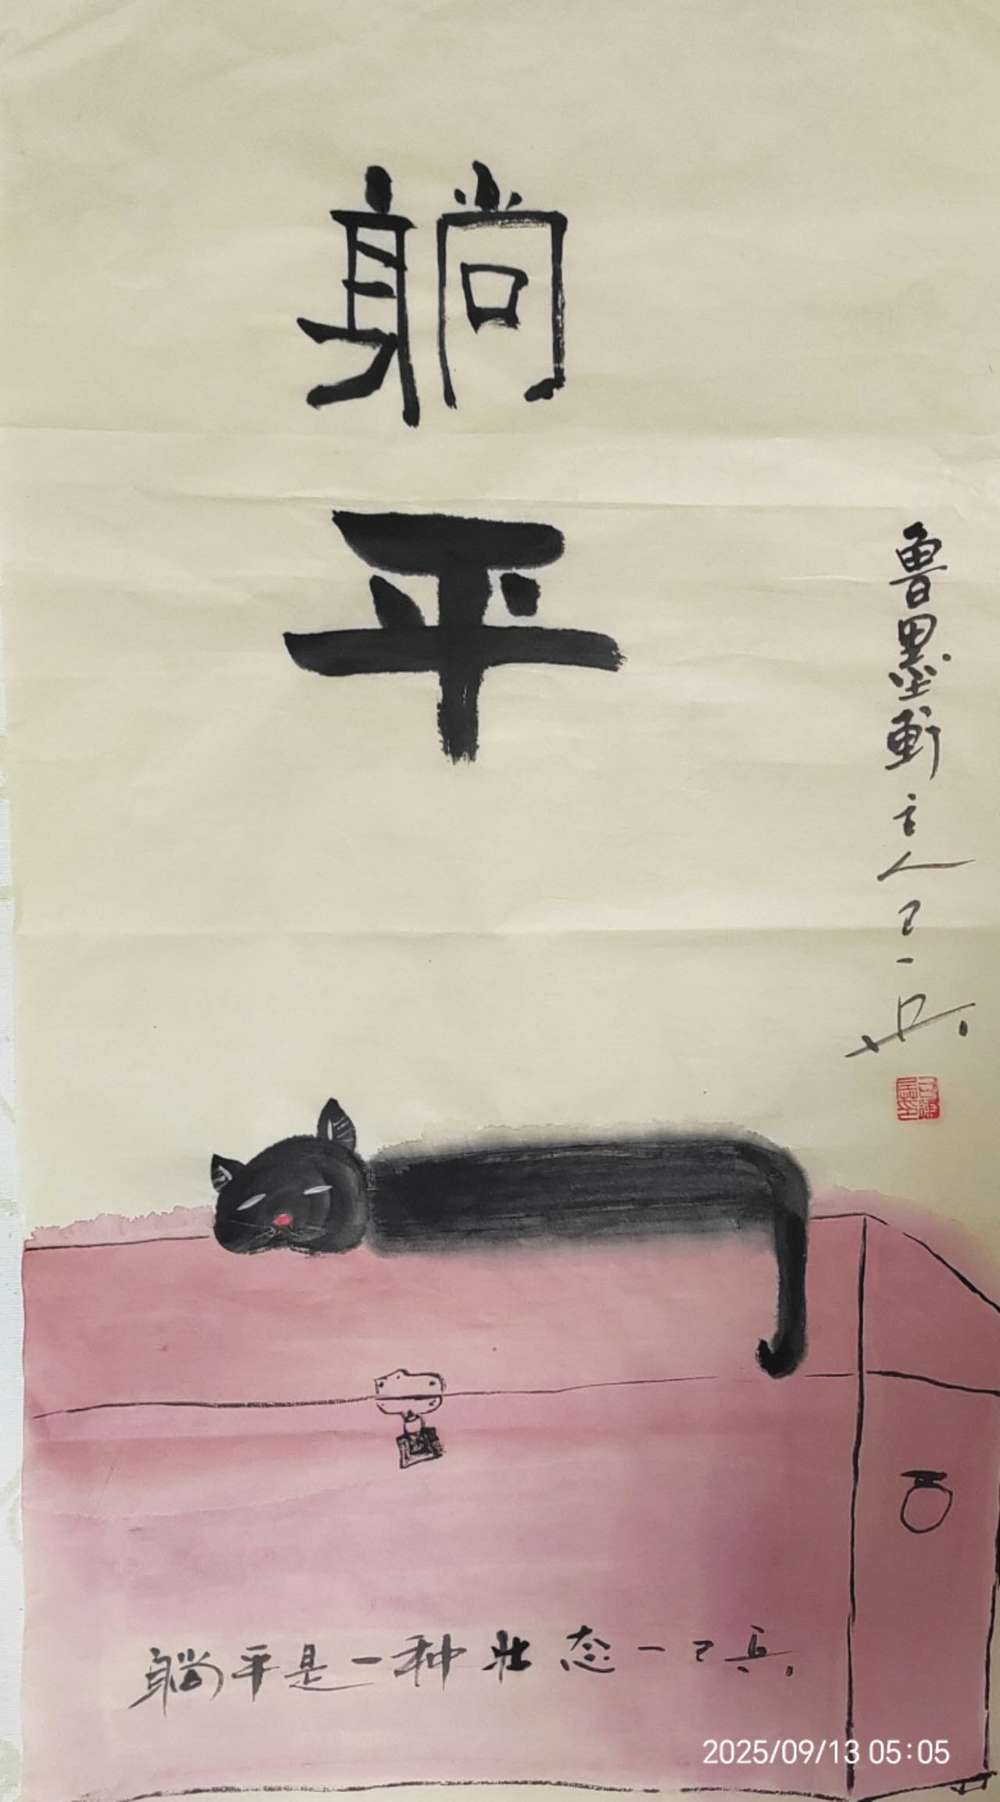 躺平
鲁墨轩主人己一兵
躺平是一种状态一己兵
2025/09/13 05:05